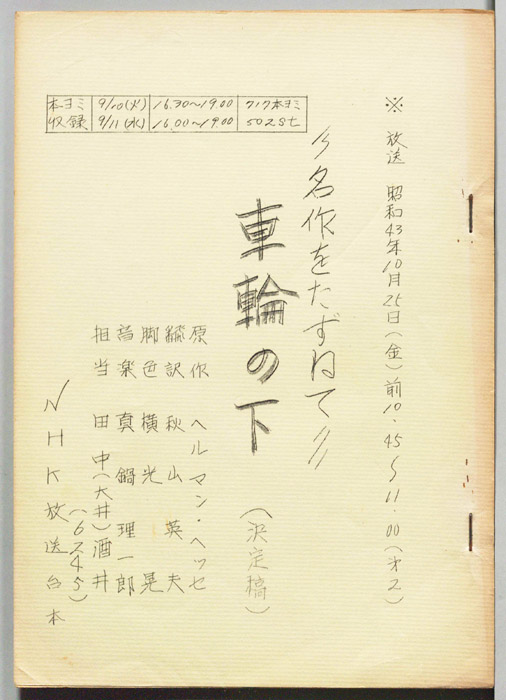 ※ 放送 昭和43年10月25日(金)前10.45〜11.00(オ2)
〃名作をたずねて〃
車輪の下
(決定稿)
原作 ヘルマン・ヘッセ
飜訳 秋山英夫
脚色 横光晃
音楽 真鍋理一郎
担当 田中(大井)酒井
(6245)
NHK放送台本
本ヨミ 9/10(火) 16.30〜19.00 717本ヨミ
収録 9/11(水) 16.00〜19.00 502St